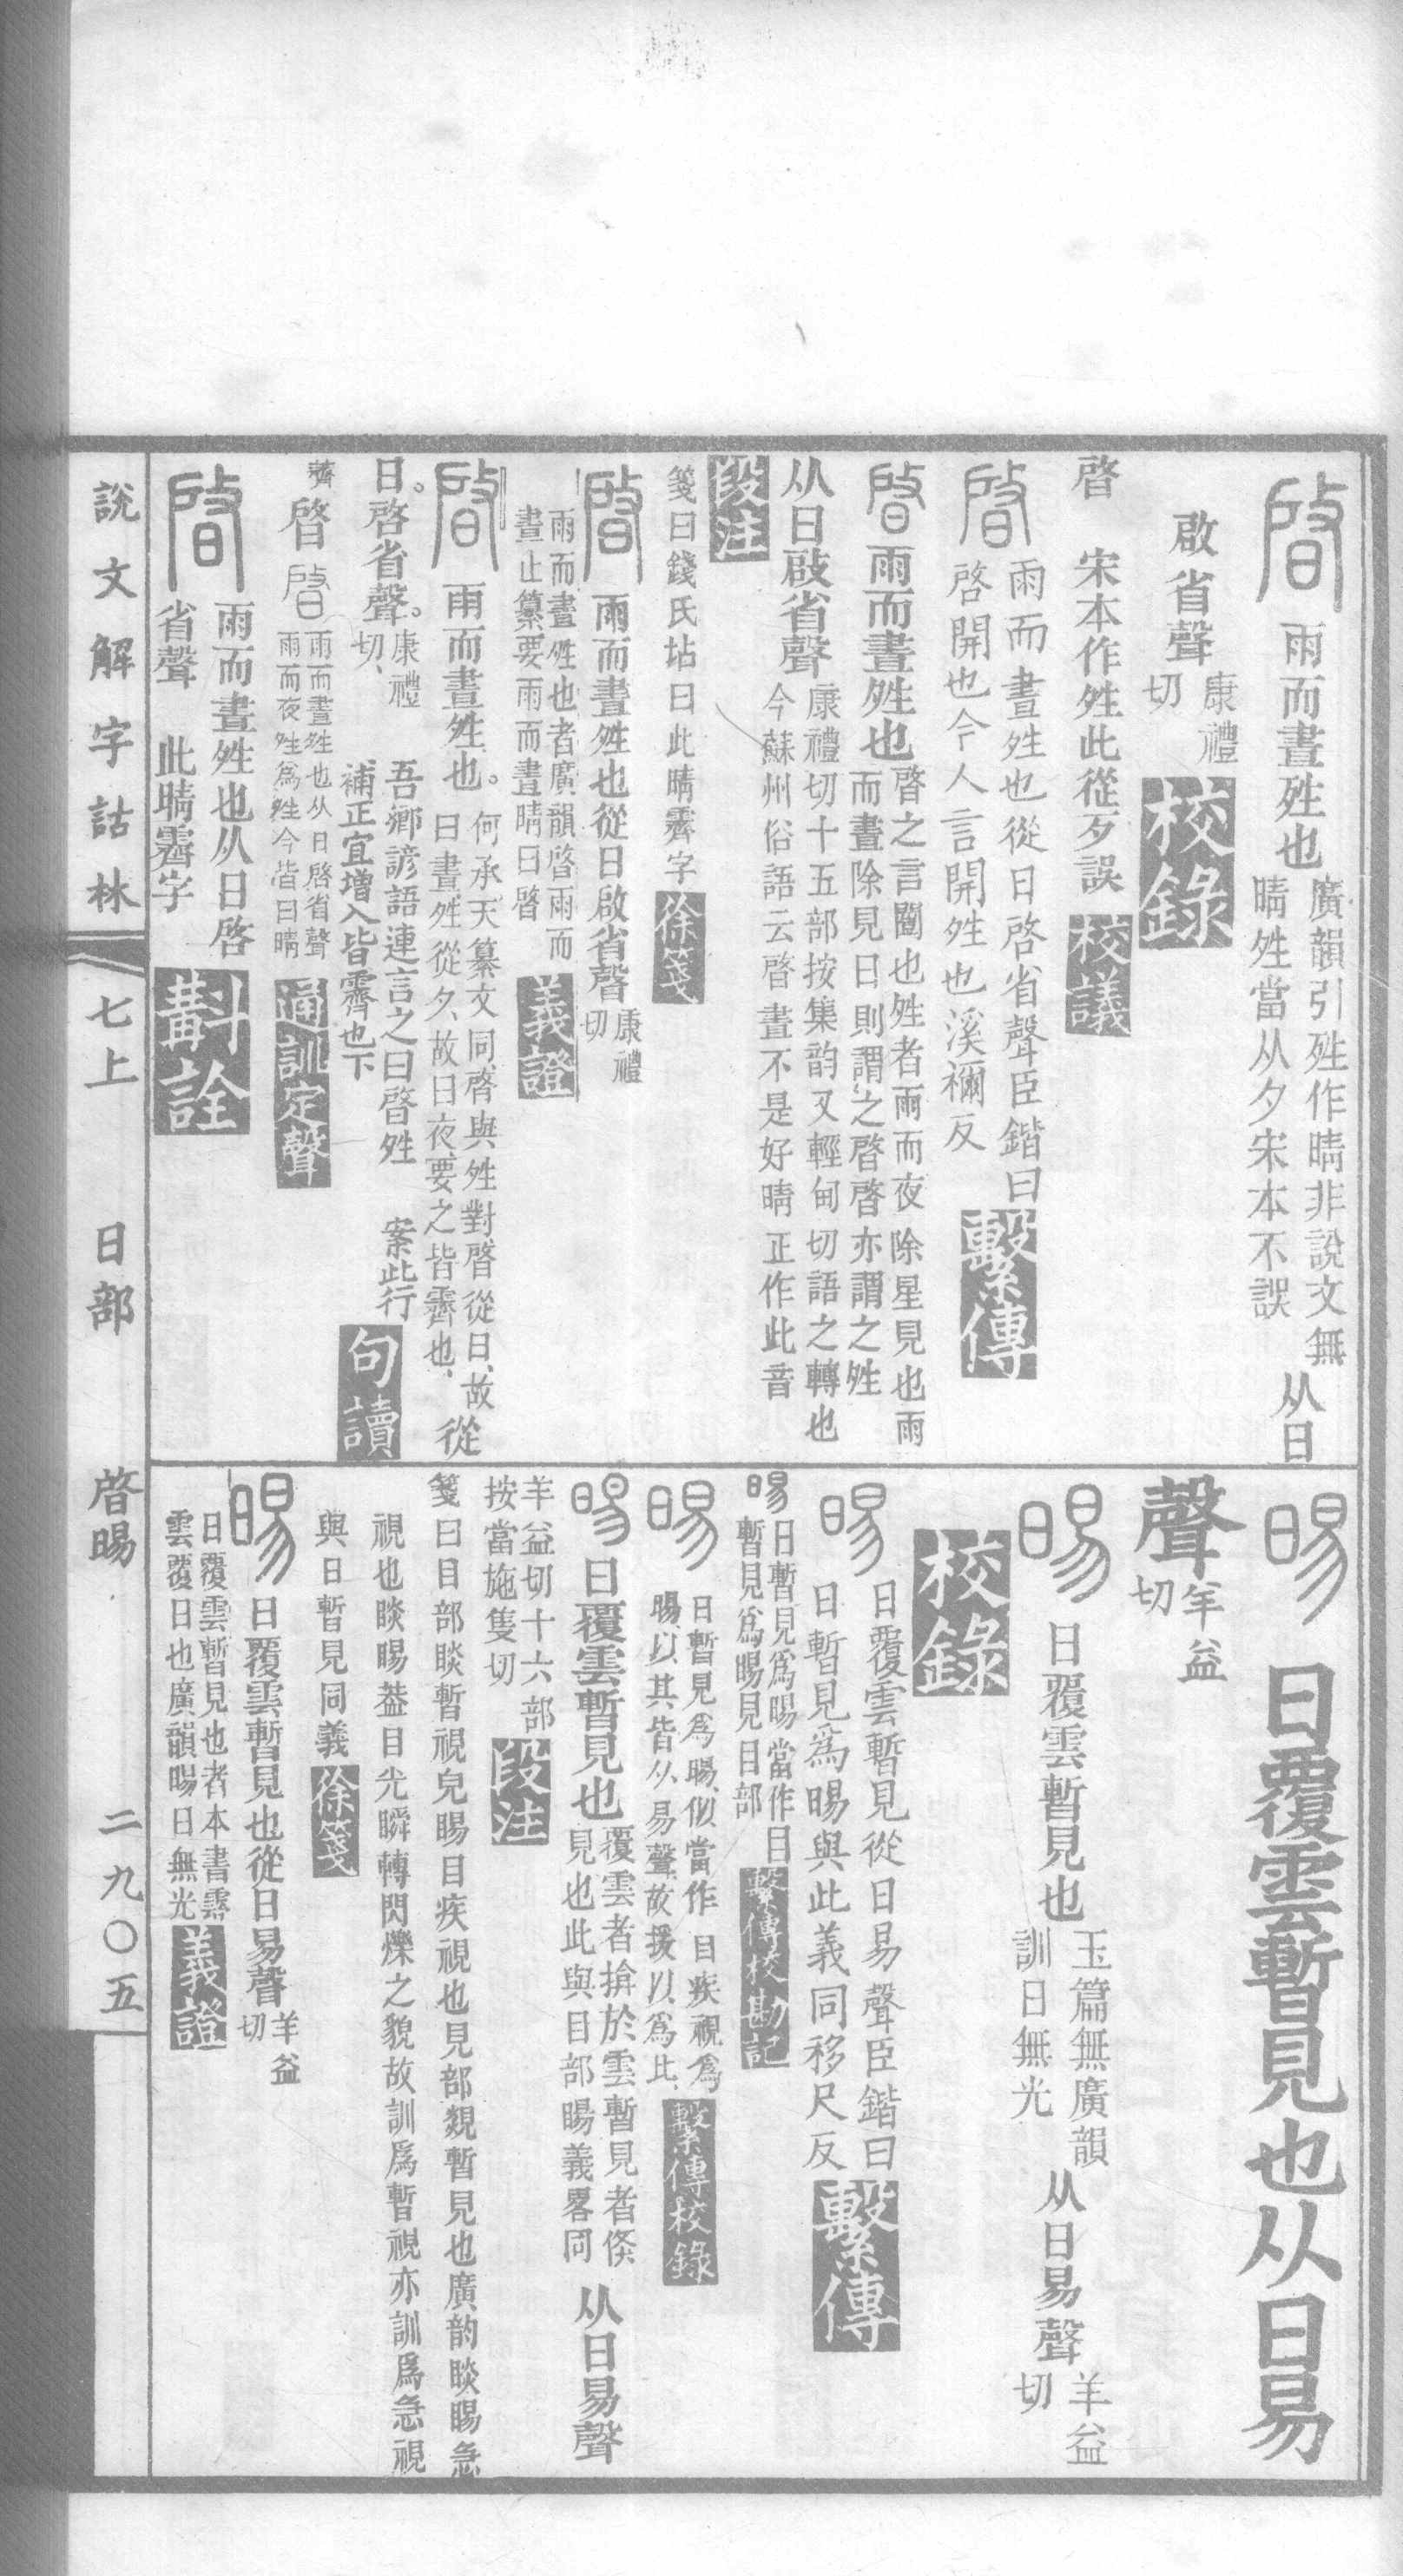 啓 雨而晝夝也廣韻引夝作晴非說文無晴夝當从夕宋本不誤从日
啟省聲康禮切 校錄
啓 宋本作夝此從歹誤 校議
啓 雨而晝夝也從日啓省聲臣鍇曰啓開也今人言開夝也溪禰反 繫傳
啓 雨而晝夝也啓之言闓也夝者雨而夜除星見也雨而晝除見日則謂之啓啓亦謂之夝
从日啟省聲康禮切十五部按集韵又輕甸切語之轉也今蘇州俗語云啓晝不是好晴正作此音
段注
箋曰錢氏坫曰此晴霽字 徐箋
啓 雨而晝夝也從日啟省聲康禮切
雨而晝夝也者廣韻啓雨而晝止纂要雨而晝晴曰啓 義證
啓 雨而晝夝也。何承天纂文同、啓與夝對、啓從日、故曰晝、夝從夕、故曰夜、要之皆霽也、從
日。啓省聲。康禮切、 吾鄉諺語連言之曰啓夝 案此行補正宜增入皆霽也下 句讀
薺 啓 雨而晝夝也从日啓省聲雨而夜夝爲夝今皆曰晴 通訓定聲
啓 雨而晝夝也从日啓省聲 此晴霽字 斠詮
晹 日覆雲暫見也从日易
聲羊益切
晹 日覆雲暫見也玉篇無廣韻訓日無光从日易聲羊益切
校錄
晹 日覆雲暫見從日易聲臣鍇曰日暫見爲晹與此義同移尺反 繫傳
晹 日暫見爲晹當作目暫見爲睗見目部 繫傳校勘記
晹 日暫見爲晹、似當作目疾視爲睗、以其皆从易聲故援以爲比、 繫傳校錄
晹 日覆雲暫見也覆雲者揜於雲暫見者倏見也此與目部睗義畧同从日易聲
羊益切十六部按當施隻切 段注
箋曰目部睒暫視皃睗目疾視也見部覢暫見也廣韵睒睗急
視也睒睗葢目光瞬轉閃爍之貌故訓爲暫視亦訓爲急視
與日暫見同義 徐箋
晹 日覆雲暫見也從日易聲羊益切
日覆雲暫見也者本書䨘雲覆日也廣韻晹日無光 義證
說文解字詁林 七上 日部 啓晹 二九〇五